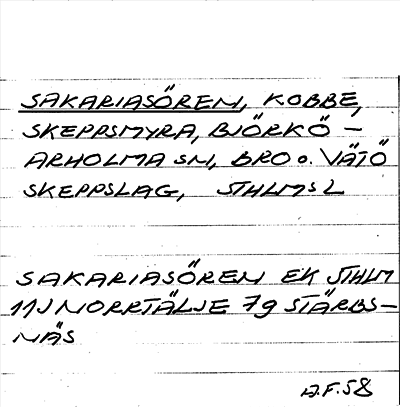 SAKARIASÖREN, KOBBE,
SKEPPSMYRA, BJÖRKÖ –
ARHOLMA SN, BRO o. VÄTÖ
SKEPPSLAG, STHLMS L
SAKARIASÖREN EK STHLM
11J NORRTÄLJE 7g STÄRBS–
NÄS
A.F. 58